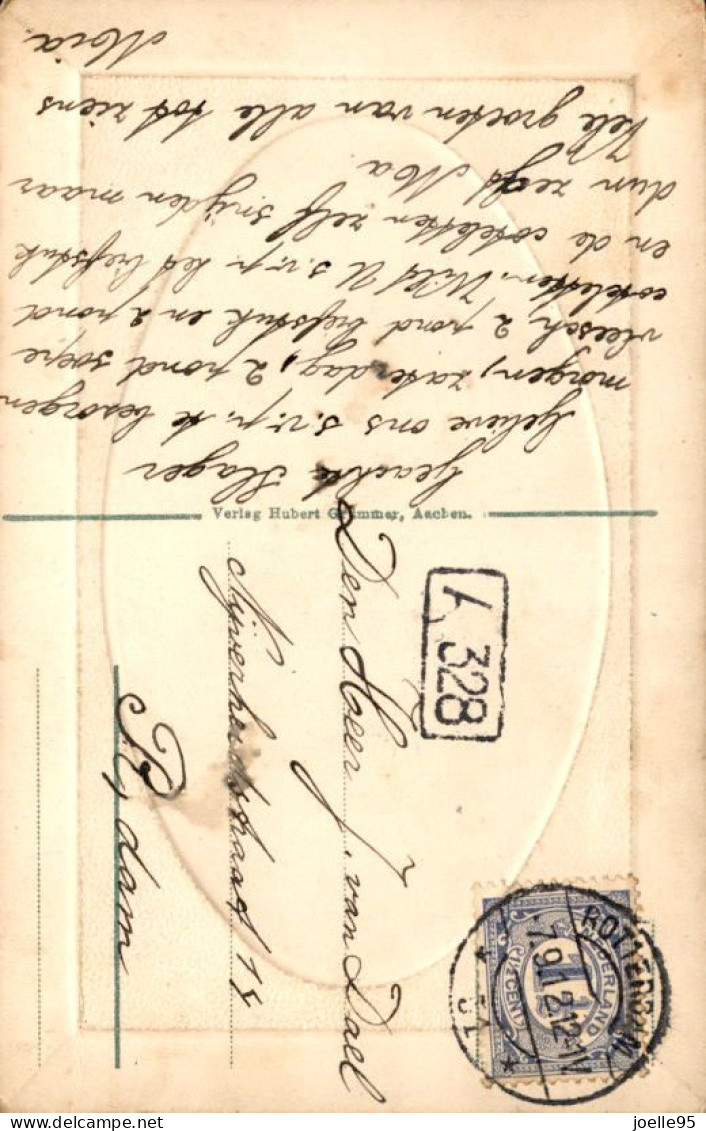 Geachte Slager
Gelieve ons s.v.p. te besorgen
morgen, zaterdag, 2 pond soepe
vleesch 2 pond biefstuk en 2 pond
coteletten. Wild U s.v.p. des biefstuk
en de coteletten zelf snijden maar
dun zegt Moa
Vele groeten van alle tot ziens
Moia
Verlag Hubert Grümmer, Aachen.
Den Heer J. van Dael
Nijverheidstraat 18
R, dam
A 328
ROTTERDAM
7.9.12.12-1N
NEDERLAND
1½
CENT
joelle95